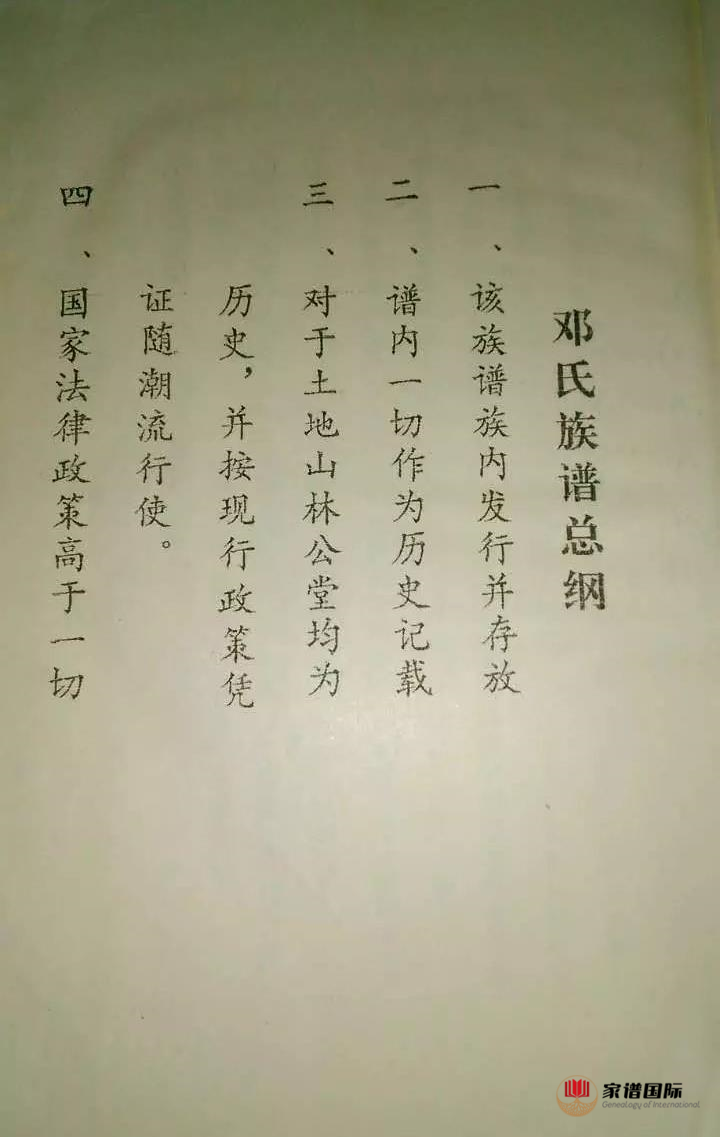 邓氏族谱总纲
一、该族谱族内发行并存放
二、谱内一切作为历史记载
三、对于土地山林公堂均为
历史，并按现行政策凭
证随潮流行使。
四、国家法律政策高于一切
家谱国际
Genealogy of International